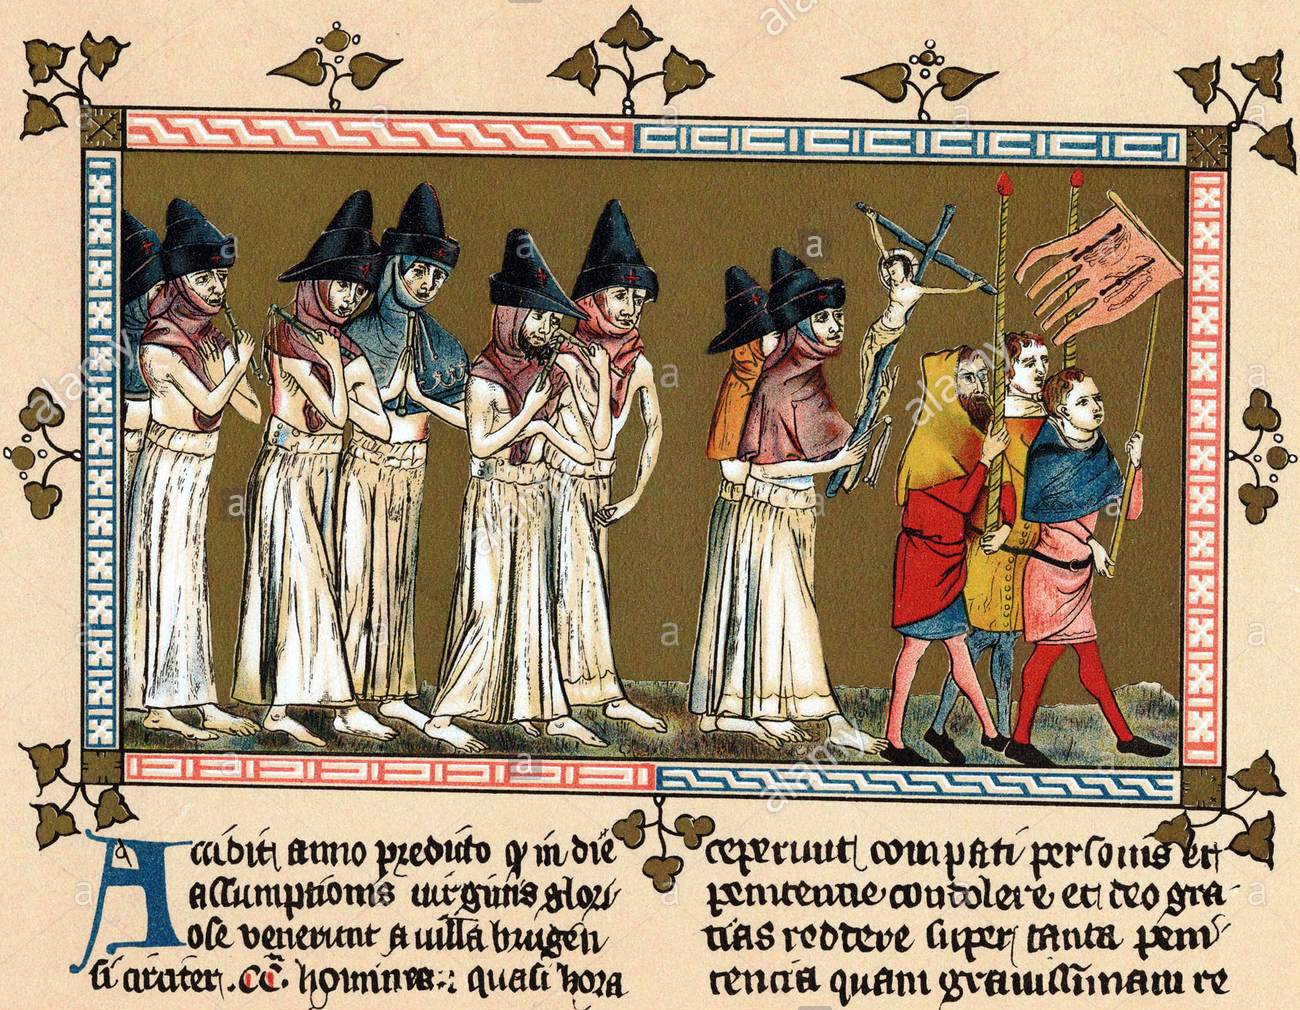 Accidit anno predicto q in die
assumptionis virginis glori
ose venerunt a villa brugen
si circiter .CC. homines quasi hora
ceperunt compati personis et
penitentie condolere et deo gra
tias reddere super tanta peni
tencia quam gravissimam re
alamy